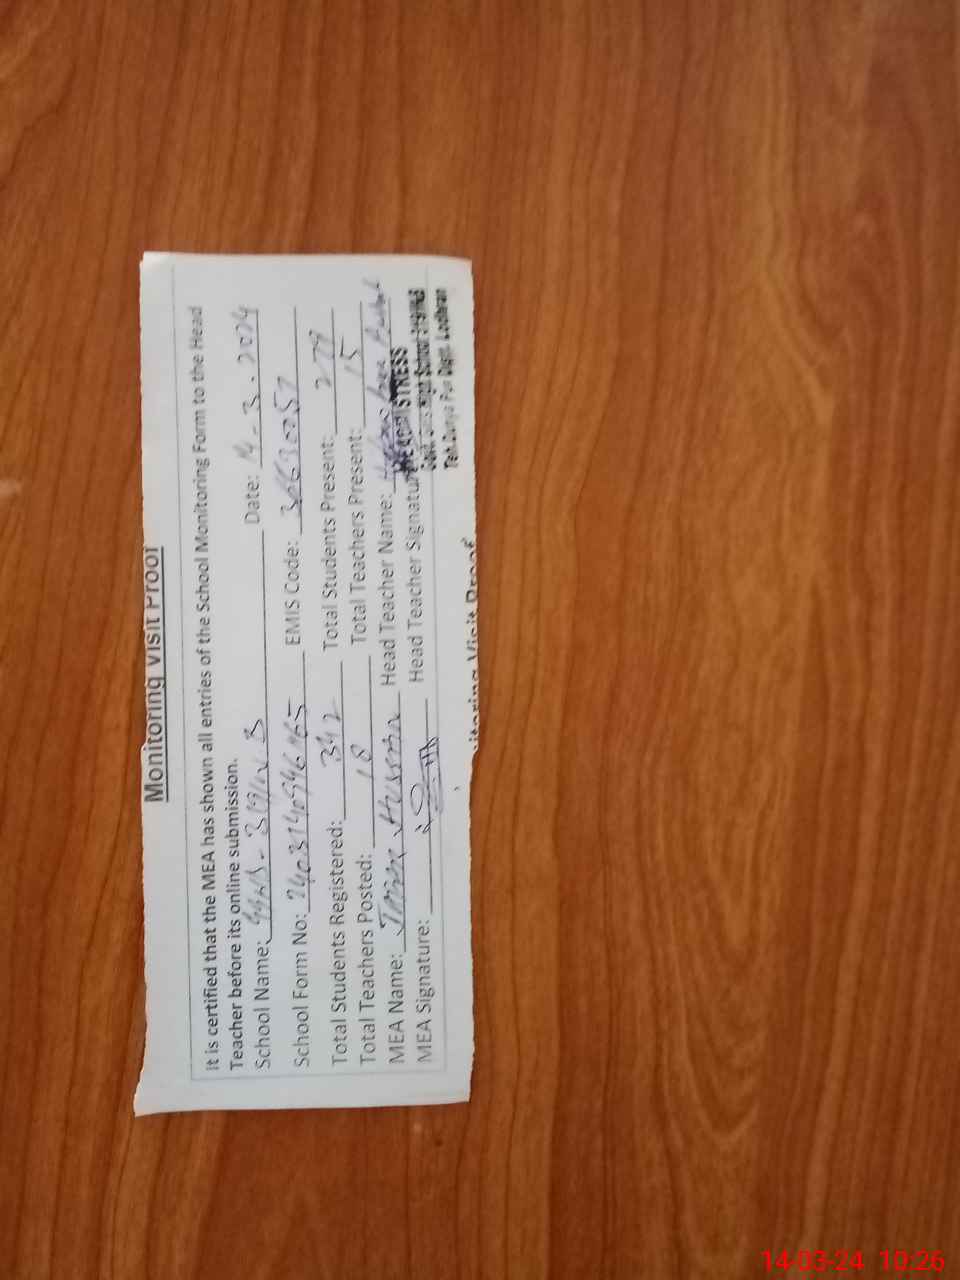 Monitoring Visit Proof
It is certified that the MEA has shown all entries of the School Monitoring Form to the Head
Teacher before its online submission.
School Name: GGHS - 319/W.B Date: 14-3-2024
School Form No: EMIS Code:
Total Students Registered: 342 Total Students Present: 279
Total Teachers Posted: 18 Total Teachers Present: 15
MEA Name: Hussain Head Teacher Name:
MEA Signature: Head Teacher Signature
HEADMISTRESS
Govt. Girls High School 319/WB
Teh. Dunya Pur Distt. Lodhran
Monitoring Visit Proof
14-03-24 10:26